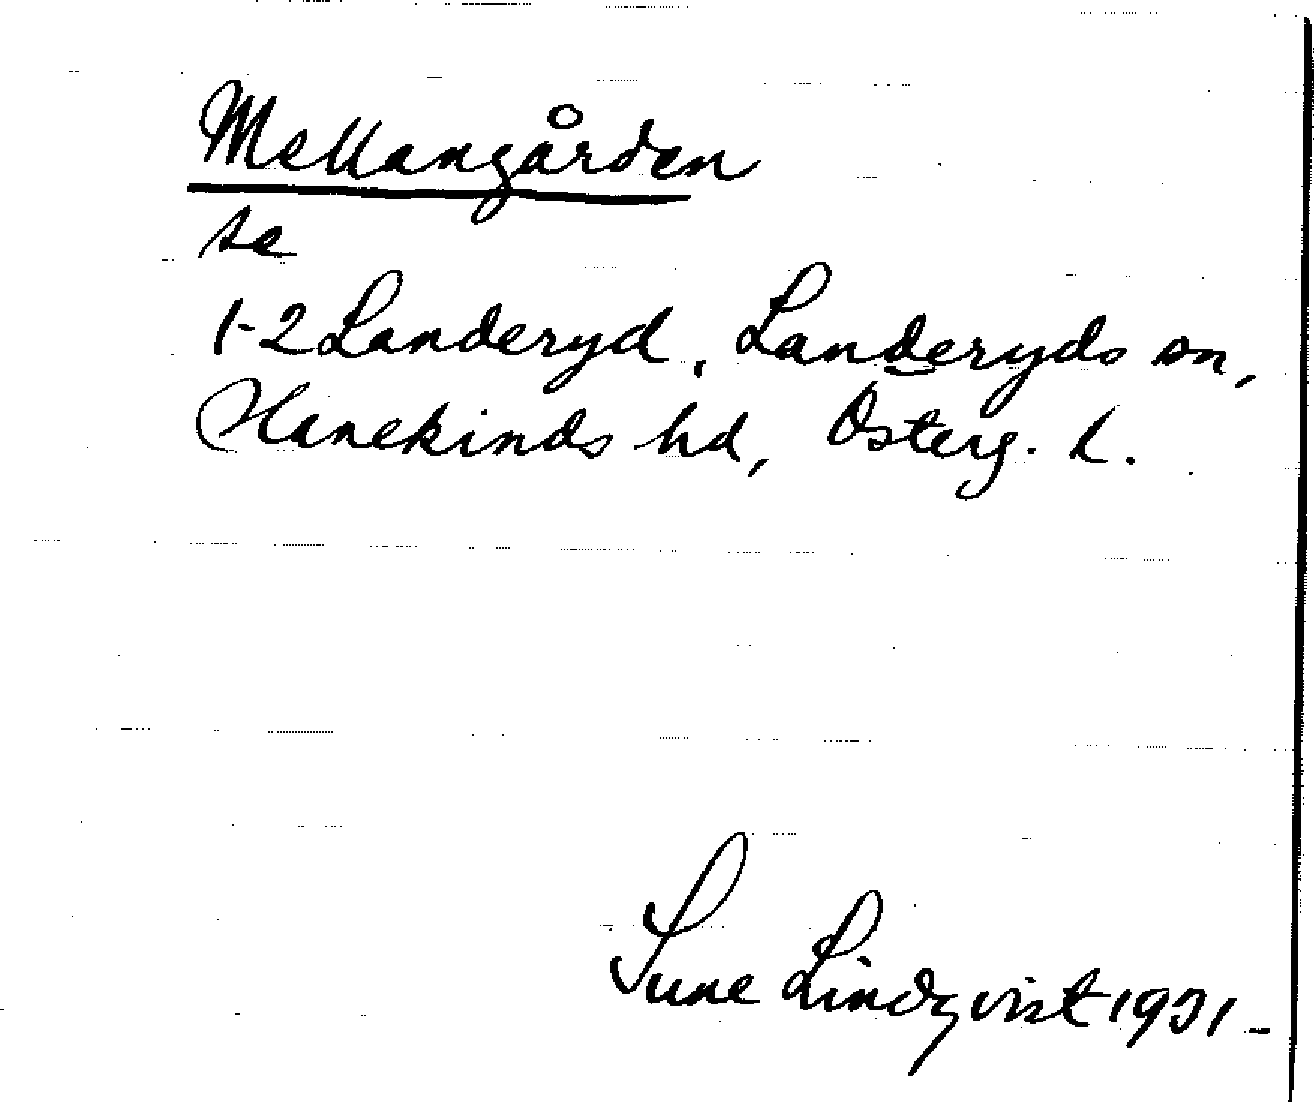 Mellangården
se
1-2 Landeryd, Landeryds sn,
Hanekinds hd, Österg. l.
Sune Lindqvist 1931-